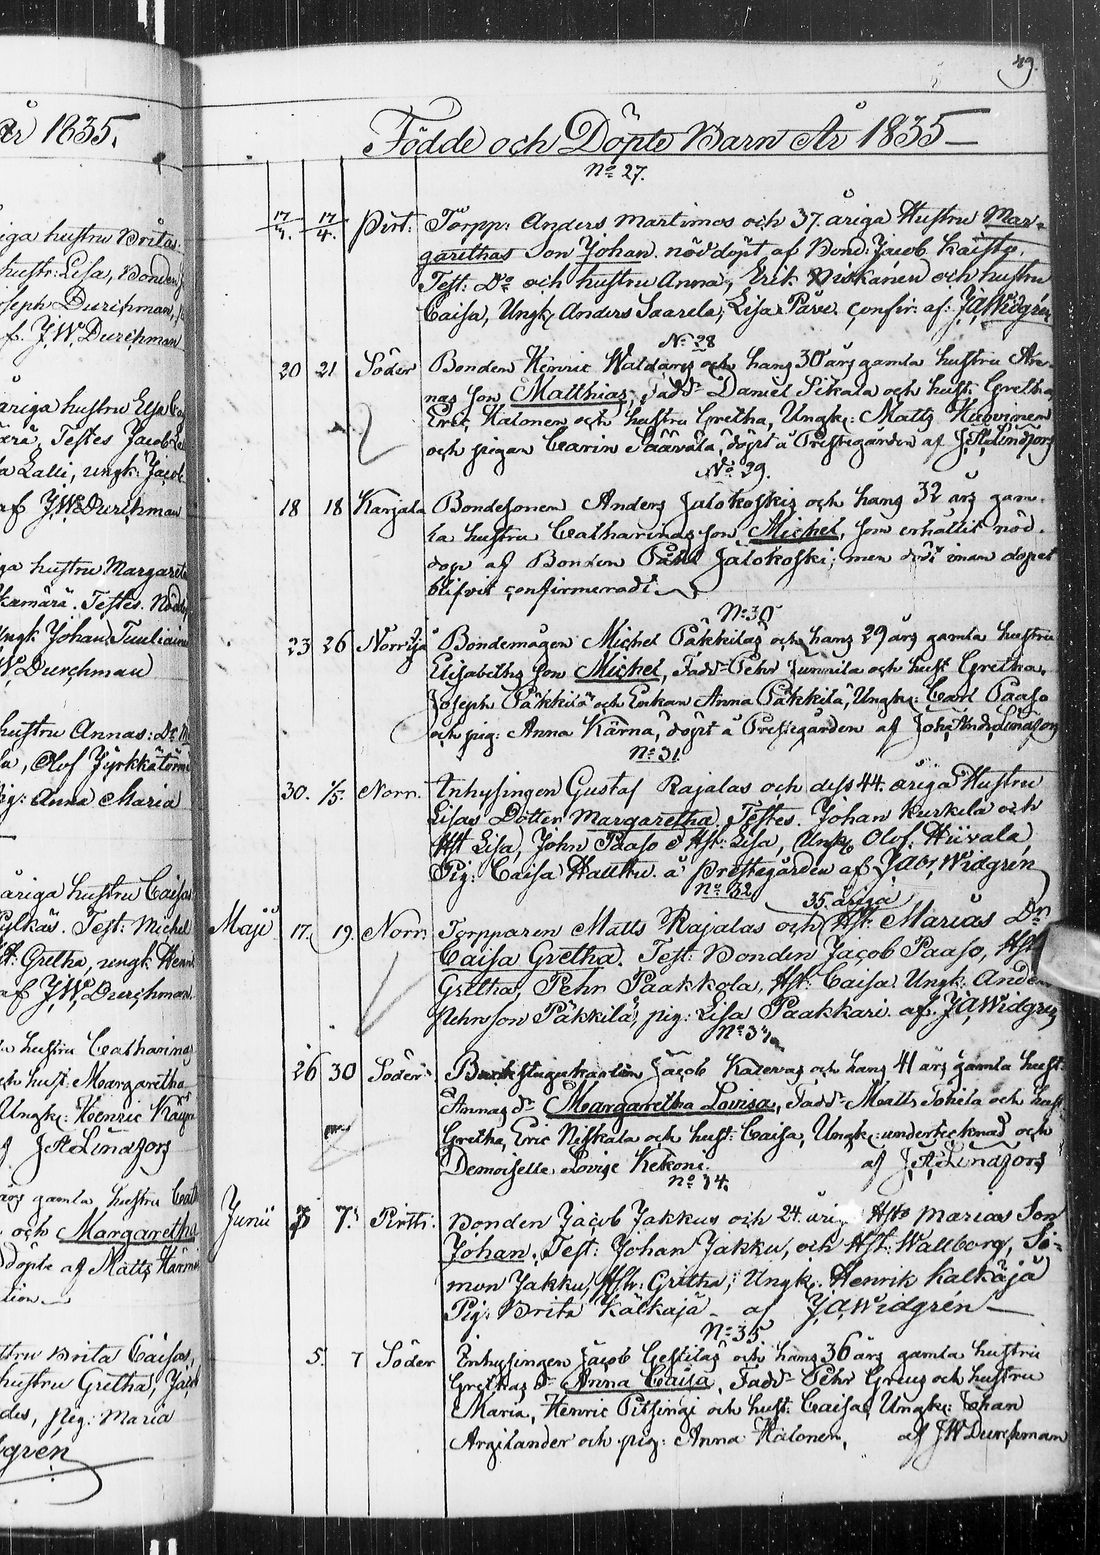 År 1835.
iga hustru Britas
hustr: Lisa, Bonden
Joseph Durchman,
af JW Durchman
åriga hustru Elsa
Testes Jacob
Lalli, ungk: Jacob
af JW Durchman
ga hustru Margareta
Kamärä. Testes. Nöd
Ungk Johan Tuuliain
JW Durchman
hustru Annas: Dr
Olof Jyrkkä
Pig: Anna Maria
åriga hustru Caisas
Pylkäs. Test: Michel
H: Gretha, ungk Henr
af JW Durchman
hustru Catharinas
och hust Margaretha
Ungk: Henric
JALindfors
års gamla hustru
och Margaretha
döpte af Matts
tion
hustru Brita Caisas,
hustru Gretha, Jacob
des, pig: Maria
dgren
89.
Födde och Döpte Barn År 1835
No 27.
17/4. 17/4. Pirt: Torpp: Anders Martimos och 37. åriga Hustru Mar-
garethas Son Johan. nöddöpt af Bond: Jacob Kaisto.
Test: Do och hustru Anna, Erik Niskanen och hustru
Caisa, Ungk Anders Saarela, Lisa Parv. confir: af: JAWidgrén
No 28
20 21 Söder Bonden Henric Waldaris och hans 30 års gamla hustru An-
nas son Matthias, Fadd: Daniel Sikala och hust: Gretha
Eric Halonen och hustru Gretha, Ungk: Matts
och pigan Carin Säävälä, döpt å Prestegården af JALindfors
No 29.
18 18 Karjala Bondesonen Anders Jalokoskis och hans 32 års gam-
la hustru Catharinas son Michel, som erhållit nöd-
dop af Bonden Påhl Jalokoski; men dödt innan dopet
blifvit confirmeradt.
No 30
23 26 Norr Bondemågen Michel Päkkiläs och hans 29 års gamla hustru
Elisabeths son Michel, Fadd: Pehr Junnila och hust Gretha,
Joseph Päkkilä och Enkan Anna Päkkilä, Ungk: Carl Paaso
och pig: Anna Kärnä, döpt å Prestegården af Joh: And: Lindfors
No 31.
30. 1/5. Norr. Inhysingen Gustaf Rajalas och dess 44. åriga Hustru
Lisas Dotter Margaretha. Testes. Johan Kurkila och
Hst Lisa, John Paaso o Hst: Lisa, Ungk Olof. Hiivala,
Pig: Caisa Hauku. å Prestegården af JAWidgrén
No 32
35. åriga
Maji 17. 19. Norr. Torpparen Matts Rajalas och Hst: Marias Dr
Caisa Gretha. Test: Bonden Jacob Paaso, Hst
Gretha, Pehr Paakkola, Hst: Caisa. Ungk: Anders
Pehrson Päkkilä, pig: Lisa Paakkari. af. JAWidgrén
26 30 Söder Backstugukarlen Jacob Katervas och hans 41 års gamla hust:
Annas dr Margaretha Lovisa, Fadd: Matts Tokila och hust
Gretha, Eric Niskala och hust: Caisa, Ungk: undertecknad och
Demoiselle Lovise Kekone. af JALindfors
No 34.
Junii 7. Pirtti. Bonden Jacob Jakkus och 24. åriga Hst Marias Son
Johan. Test: Johan Jakku, och Hst: Wallborg, Si-
mon Jakku, Hstr: Gretha, Ungk: Henrik Kälkäjä
Pig: Brita Kälkäjä - af JAWidgrén
No 35.
5. 7 Söder Inhysingen Jacob Gestilas och hans 36 års gamla hustru
Grethas dr Anna Caisa, Fadd: Pehr Greus och hustru
Maria, Henric Pitsingi och hust: Caisa, Ungk: Johan
Argilander och pig: Anna Halonen, af JW Durchman